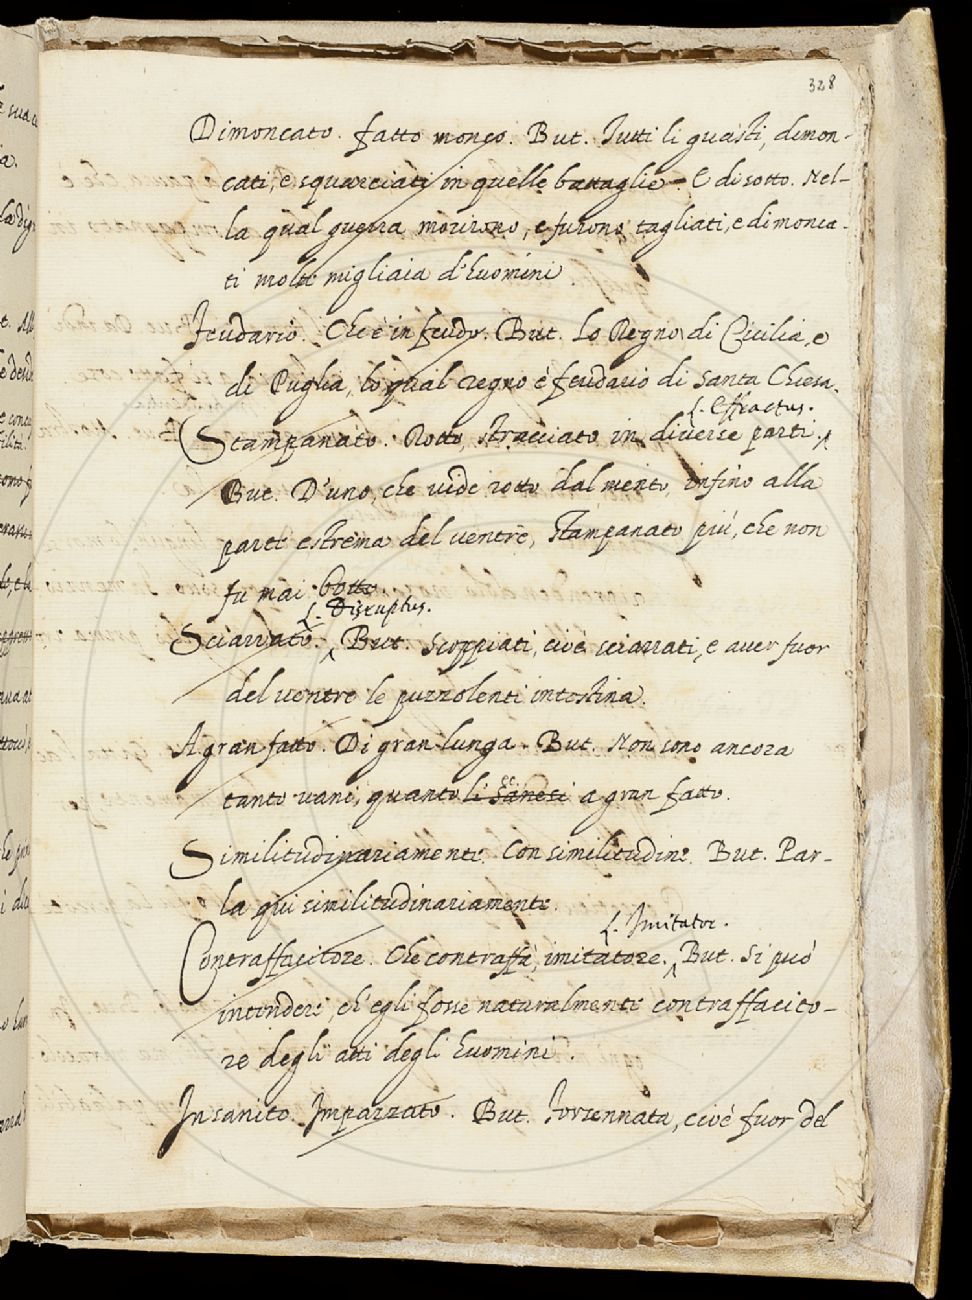 328
Dimoncato. fatto monco. But. Tutti li guasti, dimon-
cati, e squarciati in quelle battaglie. E di sotto. Nel-
la qual guerra morirono, e furono tagliati, e dimonca-
ti molte migliaia d'huomini.
Feudario. Che è in feudo. But. Lo Regno di Cicilia, e
di Puglia, lo qual regno è feudario di Santa Chiesa.
L. Effractus.
Stampanato. Rotto, stracciato in diverse parti.
But. D'uno, che vide rotto dal mento, infino alla
parte estrema del ventre, stampanato più, che non
fu mai botte.
L. Disruptus.
Sciarrato. But. Scoppiati, cioè sciarrati, e aver fuor
del ventre le puzzolenti intestina.
A gran fatto. Di gran lunga. But. Non sono ancora
tanto vani, quanto li Sanesi a gran fatto.
Similitudinariamente. Con similitudine. But. Par-
la qui similitudinariamente.
L. Imitator.
Contraffacitore. Che contraffà, imitatore. But. Si può
intendere, ch'egli fosse naturalmente contraffacito-
re degli atti degli huomini.
Insanito. Impazzato. But. Forsennata, cioè fuor del